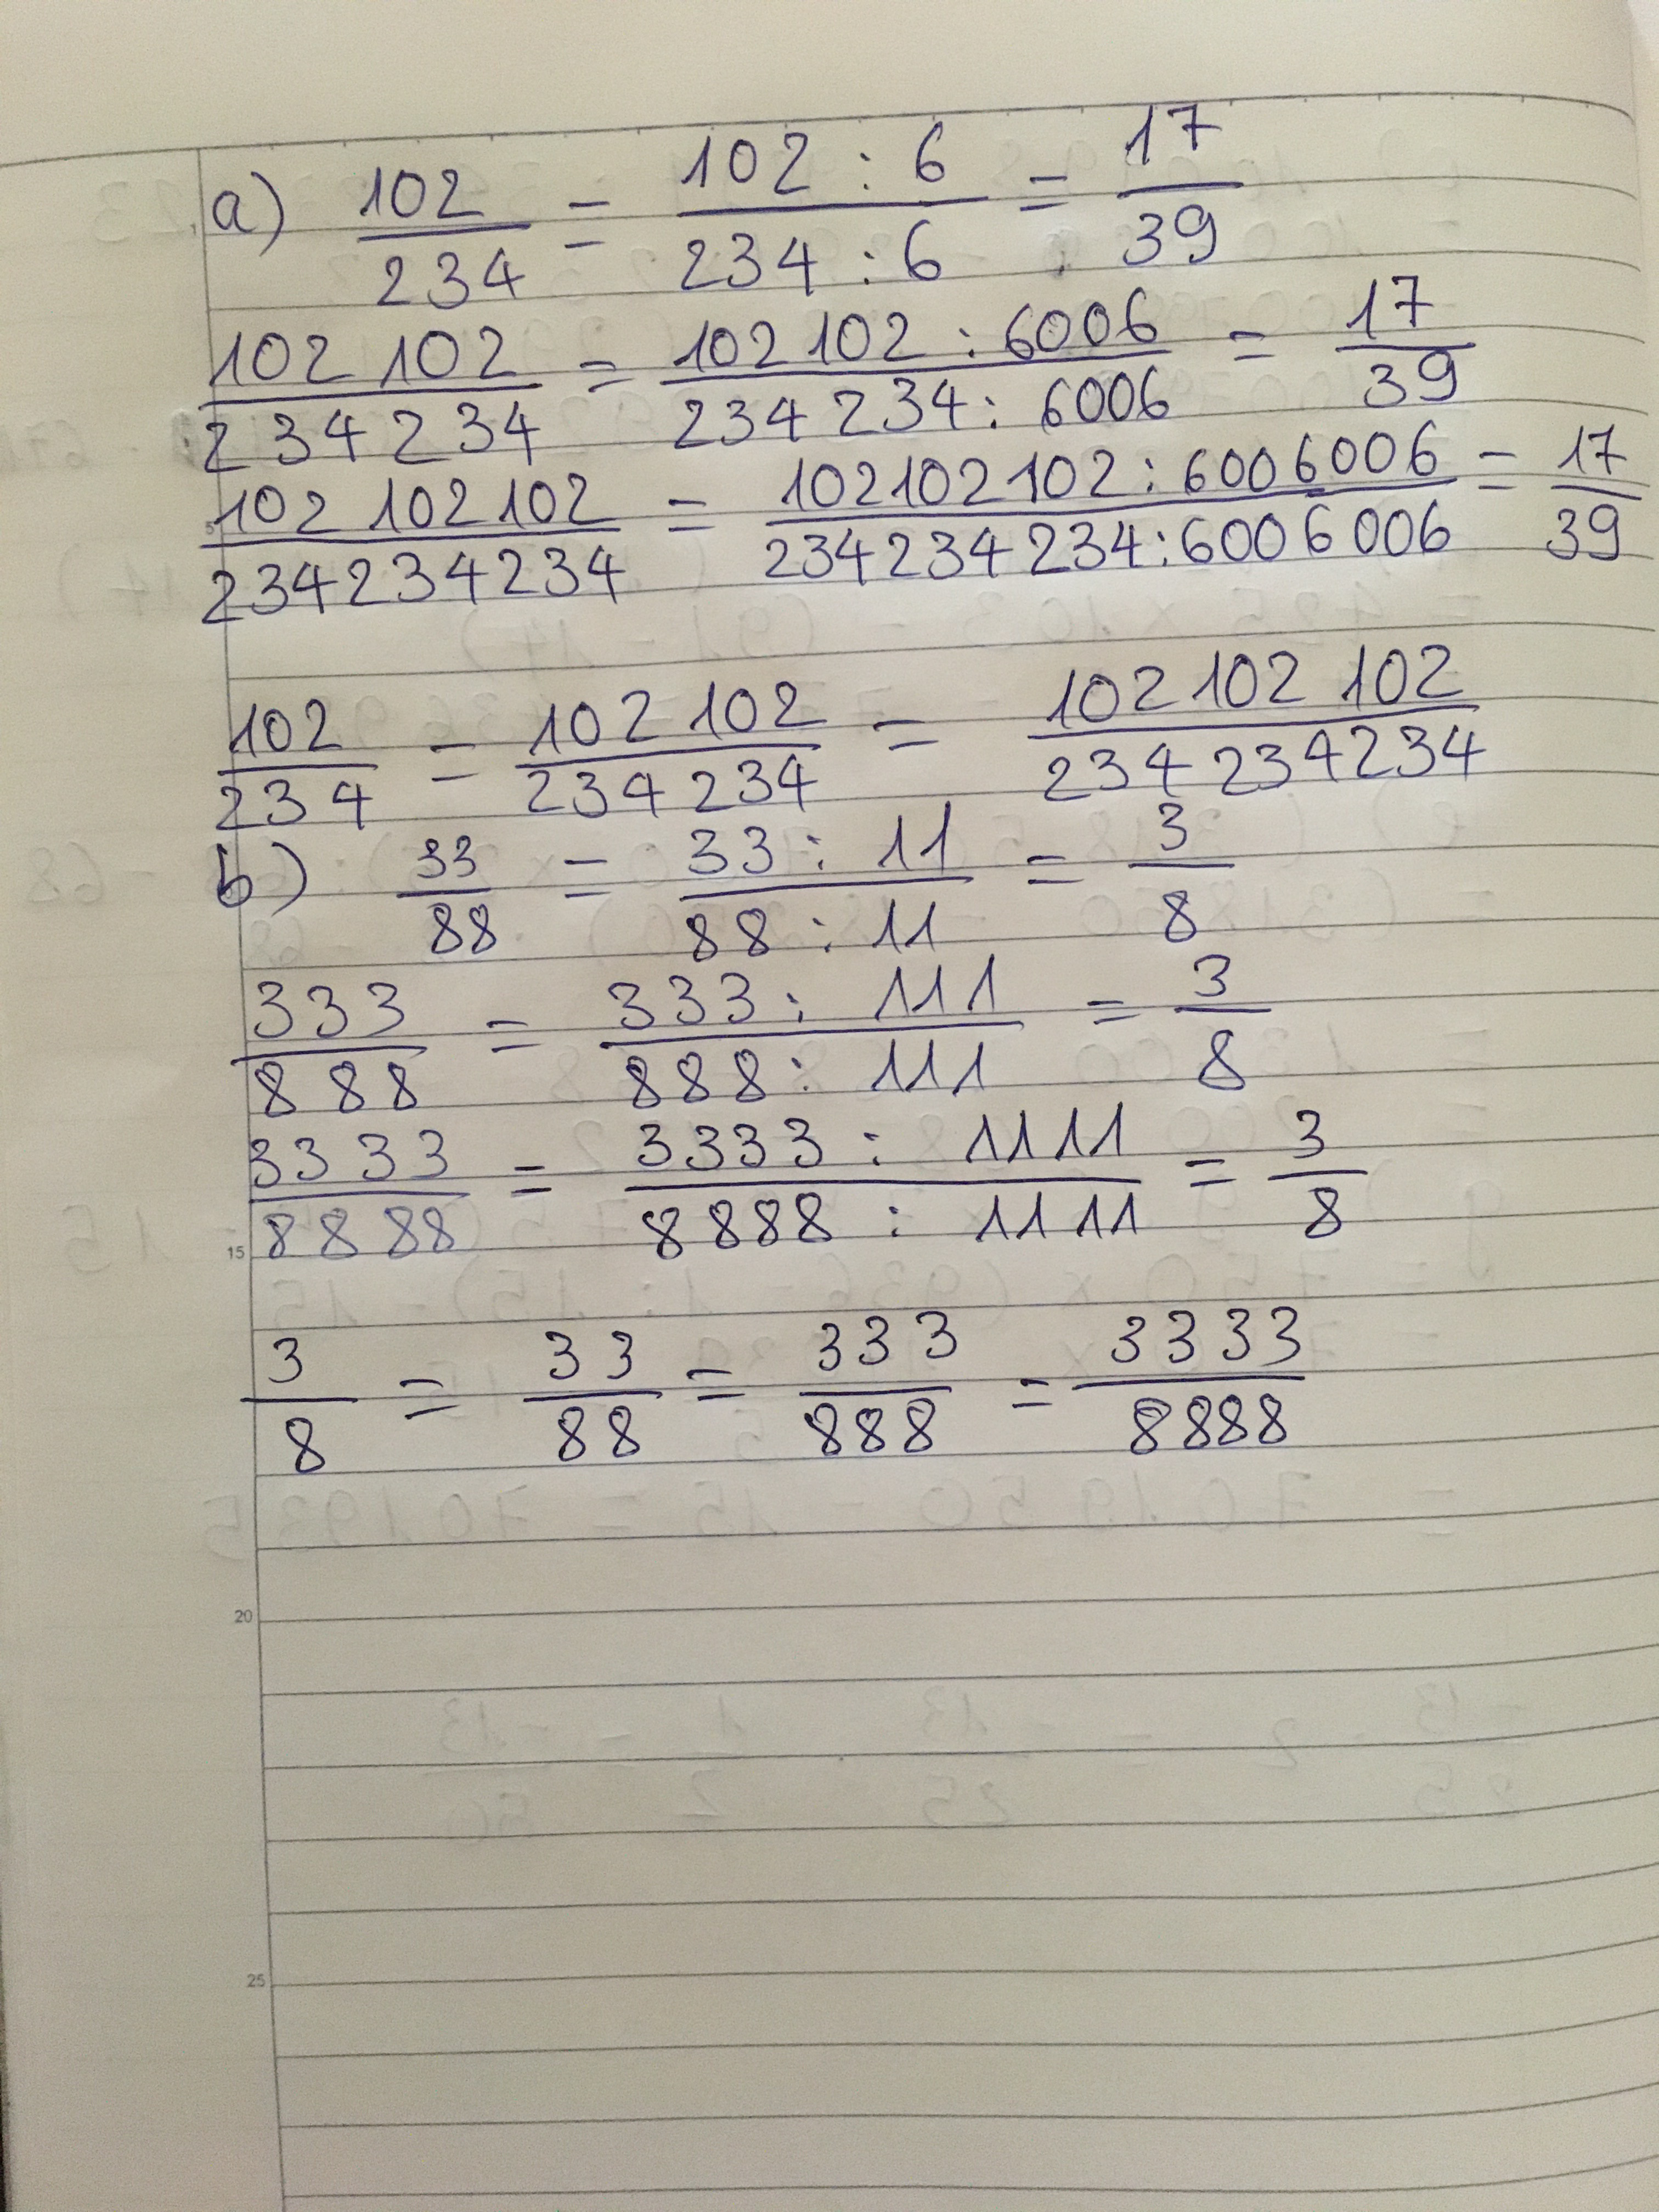 a) 102/234 = 102 : 6/234 : 6 = 17/39
102 102/234 234 = 102 102 : 6006/234 234 : 6006 = 17/39
102 102 102/234234234 = 102102102 : 6006006/234234234 : 6006006 = 17/39
102/234 = 102 102/234 234 = 102 102 102/234 234234
b) 33/88 = 33 : 11/88 : 11 = 3/8
333/888 = 333 : 111/888 : 111 = 3/8
3333/8888 = 3333 : 1111/8888 : 1111 = 3/8
15
3/8 = 33/88 = 333/888 = 3333/8888
20
25